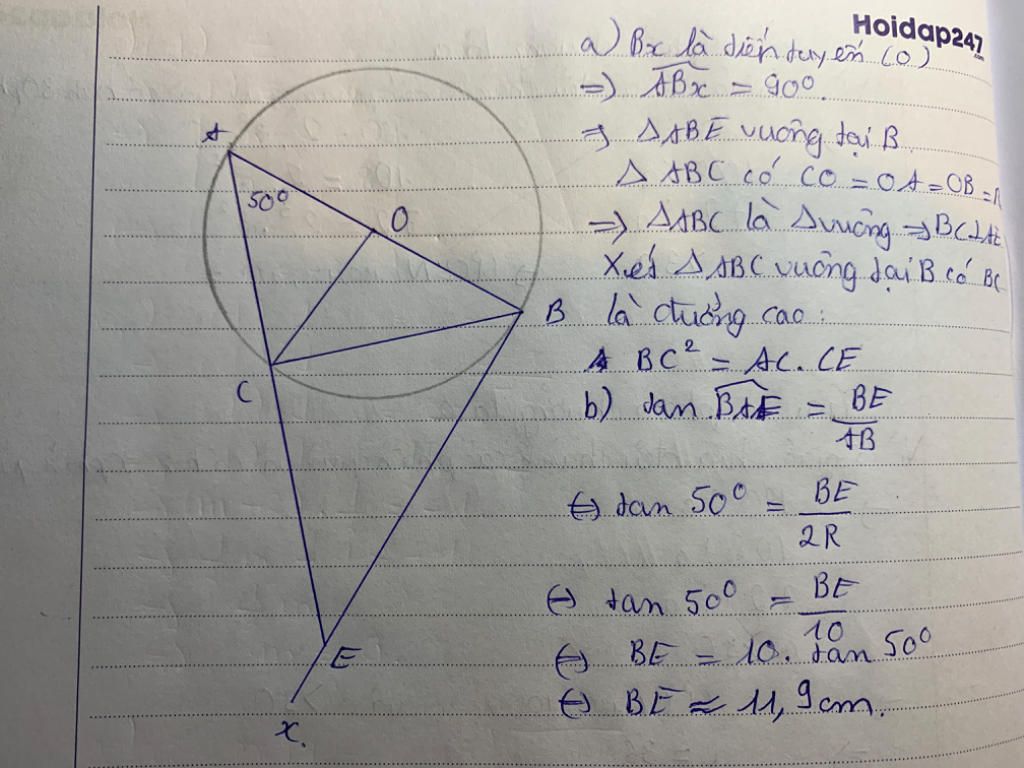 Hoidap247
.com
a) Bx là tiếp tuyến (O)
=> ABx = 90°.
=> △ABE vuông tại B.
△ ABC có CO = OA = OB = R
=> △ABC là △vuông => BC⊥AE
Xét △ABC vuông tại B có BC
là đường cao :
BC² = AC. CE
b) tan BAE = BE/AB
(=) tan 50° = BE/2R
(=) tan 50° = BE/10
(=) BE = 10. tan 50°
(=) BE ≈ 11,9cm.
A
50°
O
B
C
E
x.